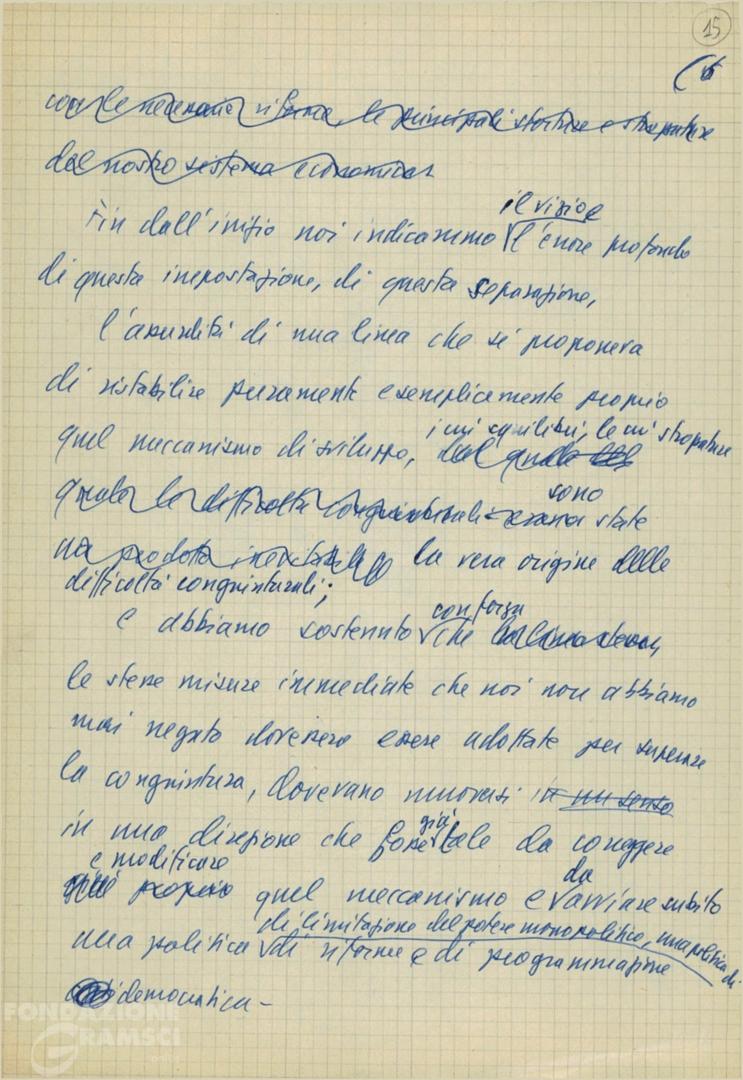 15
(6
con le necessarie riforme, le principali storture e strozzature
del nostro sistema economico.
il vizio e
Fin dall'inizio noi indicammo l'errore profondo
di questa impostazione, di questa separazione,
l'assurdità di una linea che si proponeva
di ristabilire puramente e semplicemente proprio
i cui squilibri, le cui strozzature
quel meccanismo di sviluppo, dal quale
sono
le difficoltà congiunturali erano state
un prodotto inevitabile la vera origine delle
difficoltà congiunturali;
con forza
e abbiamo sostenuto che
le stesse misure immediate che noi non abbiamo
mai negato dovessero essere adottate per superare
la congiuntura, dovevano muoversi in un senso
già
in una direzione che fosse tale da correggere
e modificare
da
proprio quel meccanismo e avviare subito
di limitazione del potere monopolitico, una politica di
una politica di riforme e di programmazione
democratica -
FONDAZIONE
GRAMSCI